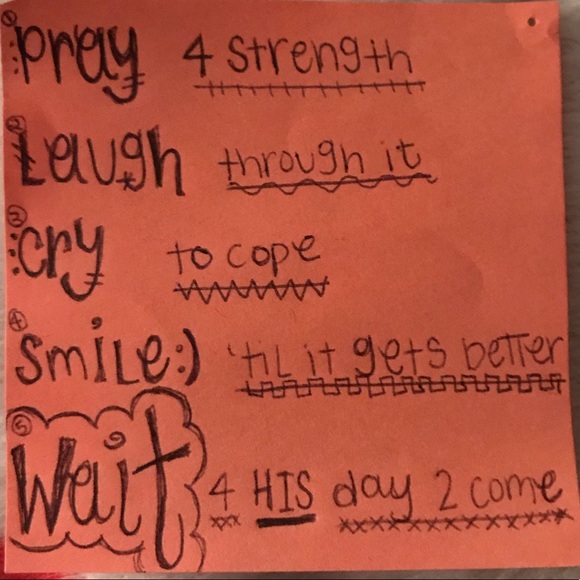 ① pray 4 strength
② Laugh through it
③ cry to cope
④ smiLe:) 'tiL it gets better
⑤ Wait 4 HIS day 2 come